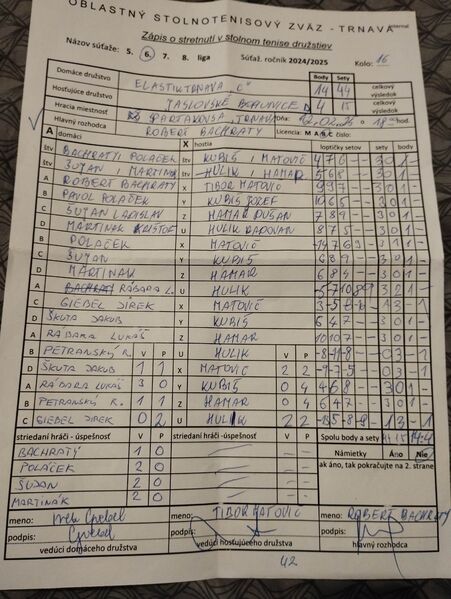 OBLASTNÝ STOLNOTENISOVÝ ZVÄZ - TRNAVA
Zápis o stretnutí v stolnom tenise družstiev
Názov súťaže: 5. 6. 7. 8. liga Súťaž. ročník 2024/2025 Kolo: 16
Domáce družstvo ELASTIK TRNAVA "C" Body Sety celkový
Hosťujúce družstvo 14 44 výsledok
JASLOVSKÉ BOHUNICE D 4 15 celkový výsledok
Hracia miestnosť SPARTAKOVSKÁ, TRNAVA Dňa: hod.
Hlavný rozhodca ROBERT BACHRATÝ Licencia: M A B C číslo:
A domáci X hostia loptičky setov sety body
štv BACHRATÝ POLAČEK štv KUBIŠ, MATOVIČ 4 7 6 - - 3 0 1 -
štv ŠUJAN, MARTINAK štv HULIK, HAMAR 5 6 8 - - 3 0 1 -
A ROBERT BACHRATY X TIBOR MATOVIČ 9 9 7 - - 3 0 1 -
B PAVOL POLAČEK Y KUBIŠ JOZEF 10 6 5 - - 3 0 1 -
C ŠUJAN LADISLAV Z HAMAR DUŠAN 7 8 9 - - 3 0 1 -
D MARTINAK KRISTOF U HULIK RADOVAN 8 7 5 - - 3 0 1 -
B POLAČEK X MATOVIČ 3 1 1 -
C ŠUJAN Y KUBIŠ 6 8 9 - - 3 0 1 -
D MARTINAK Z HAMAR 6 8 4 - - 3 0 1 -
A RÁBARA L. U HULIK 3 2 1 -
C GIEBEL JIREK X MATOVIČ 1 3 - 1
D ŠKUTA JAKUB Y KUBIŠ 6 4 7 - - 3 0 1 -
A RÁBARA LUKÁŠ Z HAMAR 10 10 7 - - 3 0 1 -
B PETRANSKÝ R. V P U HULIK V P -8 -11 -8 - - 0 3 - 1
D ŠKUTA JAKUB 1 1 X MATOVIČ 2 2 -9 -7 -5 - - 0 3 - 1
A RÁBARA LUKÁŠ 3 0 Y KUBIŠ 0 4 4 6 8 - - 3 0 1 -
B PETRANSKÝ R. 1 1 Z HAMAR 0 4 6 4 7 - - 3 0 1 -
C GIEBEL JIREK 0 2 U HULIK 2 2 1 3 - 1
striedaní hráči - úspešnosť V P striedaní hráči - úspešnosť V P Spolu body a sety 44:15 14:4
BACHRATÝ 1 0 Námietky Áno Nie
POLAČEK 2 0 ak áno, tak pokračujte na 2. strane
ŠUJAN 2 0
MARTINÁK 2 0
meno: Giebel meno: TIBOR MATOVIČ meno: ROBERT BACHRATY
podpis: Giebel podpis: podpis:
vedúci domáceho družstva vedúci hosťujúceho družstva hlavný rozhodca
42